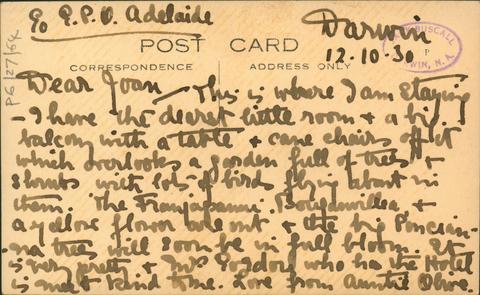 c/o G.P.O. Adelaide
Darwin
12.10.30
POST CARD
CORRESPONDENCE
ADDRESS ONLY
PG/27/54
Dear Joan — This is where I am staying
- I have the dearest little room & a big
balcony with a table & cane chairs off it
which overlooks a garden full of trees &
shrubs with lots of birds flying about in
them. The Franjapanni, Bougainvillea &
a yellow flower are out & the big Poncian-
na trees will soon be in full bloom. It
is very pretty & Mrs who has the Hotel
is most kind to me. Love from Auntie Olive.